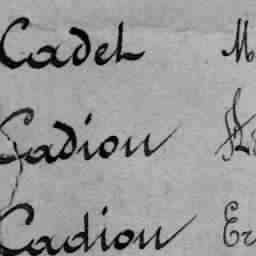 Cadet M
Cadiou
Cadiou Er